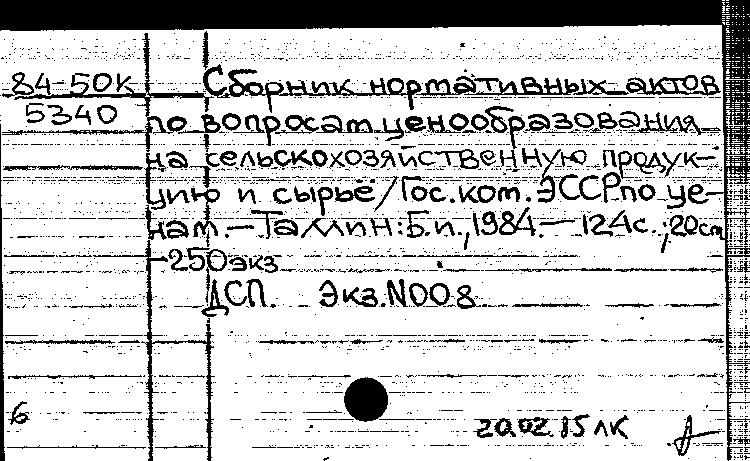 84-50К Сборник нормативных актов
5340 по вопросам ценообразования
на сельскохозяйственную продук-
цию и сырьё/Гос.ком.ЭССР по це-
нам.-Таллин:Б.и.,1984.-124с.;20см
-250экз
ДСП. Экз.N008
6 20.02.85 ЛК